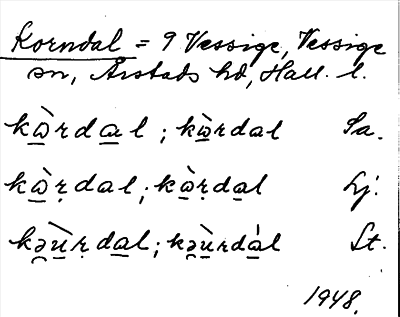 Korndal = 9 Vessige, Vessige
sn, Årstads hd, Hall. l.
kɷ̠̀rda̠l ; kɷ̠̀rdal Sa.
kɷ̠̀ṛda̠l ; kɷ̠̀ṛda̠l Lj.
kə̯ù̠ṛda̠l ; kə̯ù̠rdá̠l St.
1948.